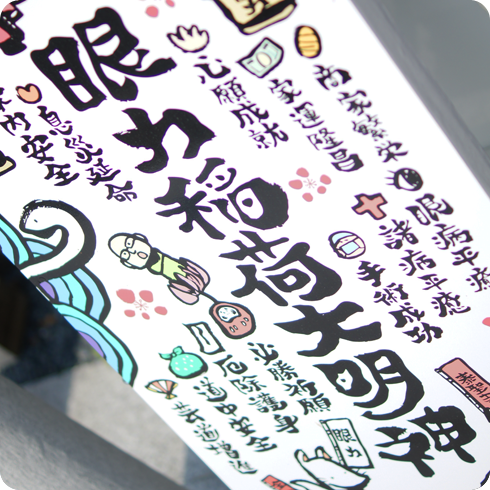 眼力稲荷大明神
商家繁栄
家運隆昌
心願成就
息災延命
家内安全
眼病平癒
諸病平癒
手術成功
必勝祈願
厄除護身
道中安全
芸道増進
眼力